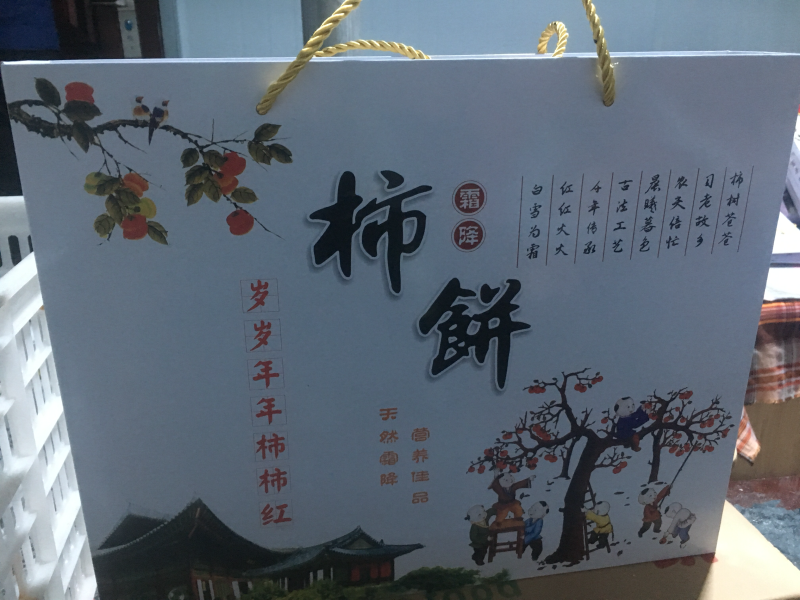 柿餅
霜降
柿树苍苍
日老故乡
农夫倍忙
晨曦暮色
古法工艺
千年传承
红红火火
白雪为霜
岁岁年年柿柿红
营养佳品
天然霜降